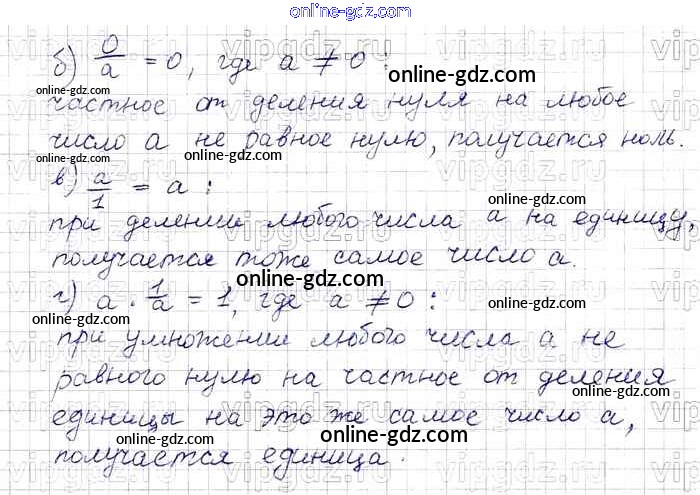 online-gdz.com
б) 0/a = 0, где a ≠ 0 :
online-gdz.com
частное от деления нуля на любое
online-gdz.com
число a не равное нулю, получается ноль.
online-gdz.com
online-gdz.com
в) a/1 = a :
online-gdz.com
при делении любого числа a на единицу,
online-gdz.com
получается тоже самое число a.
online-gdz.com
г) a · 1/a = 1, где a ≠ 0 :
online-gdz.com
online-gdz.com
при умножении любого числа a не
online-gdz.com
равного нулю на частное от деления
единицы на это же самое число a,
online-gdz.com
online-gdz.com
получается единица.